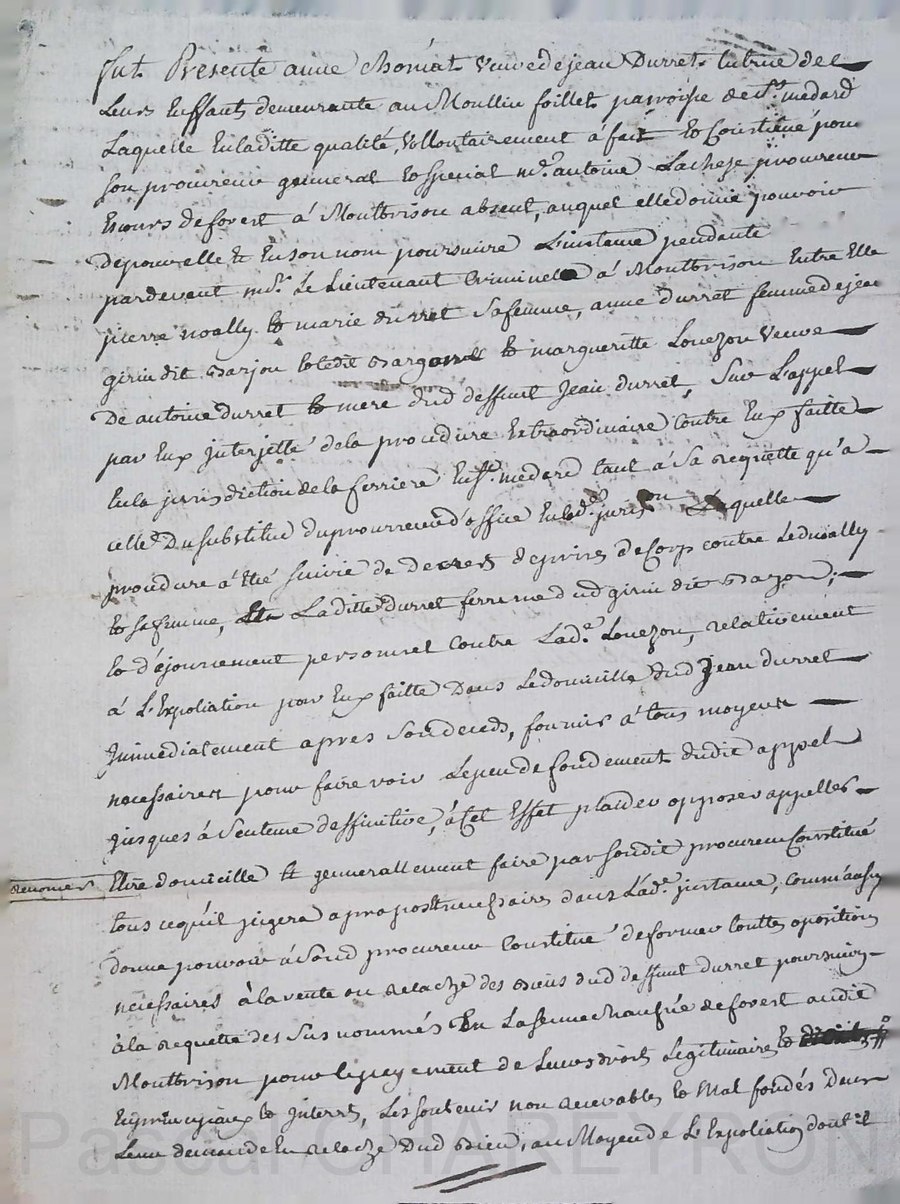 fut Presente anne Chomat veuve de jean Durret tutrice de
Leurs Enffants demeurante au Moullin foillet parroisse de St. medard
Laquelle En laditte qualité, vollontairement à fait & Constitué pour
son procureur general & special mr. antoine Lachese procureur
Es cours de forest à Montbrison absent, auquel elle donne pouvoir
de pour elle & En son nom poursuivre L'instance pendante
pardevant mr. Le Lieutenant Criminel à Montbrison Entre Elle
pierre noally & marie durret sa femme, anne durret femme de jean
girin dit Barjon & margueritte Louezon veuve
De antoine durret & mere dud deffunt Jean durret, Sur L'appel
par Eux Interjetté de la procedure Extraordinaire Contre Eux faitte
En la jurisdiction de la ferriere En St. medard tant à sa requette qu'a
celle Du substitud du procureur d'office En lade. jurison Laquelle
procedure à Eté suivie de decret de prises de Corp contre Led noally
& sa femme, Laditte durret femme dud girin dit Barjon,
& d'ajournement personnel Contre Lade. Louezon, relativement
à L'Expoliation par Eux faitte Dans Le domicille dud Jean durret
Immediatement apres son deceds, fournir à tous moyens
necessaires pour faire voir Le peu de fondement dudit appel
jusques à Sentence deffinitive, à Cet Effet plaider opposer appeller
renoncer Elire domicille & generallement faire par Soudit procureur Constitué
tous ce qu'il jugera a propos & necessaires dans Lade. instance, comm'aussy
donne pouvoir à Sond procureur Constitué de former touttes opositions
necessaires à la vente ou relache des biens dud deffunt durret poursuivy
à la requette des sus nommés En La senechaussée de forest audit
Montbrison pour le payement de Leurs droits Legitimaires &
En principaux & Interets, Les soutenir non recevables & Mal fondés Dans
Leur demande En relache Dud bien, au Moyen de L'Expoliation dont il
Pascal CHAREYRON